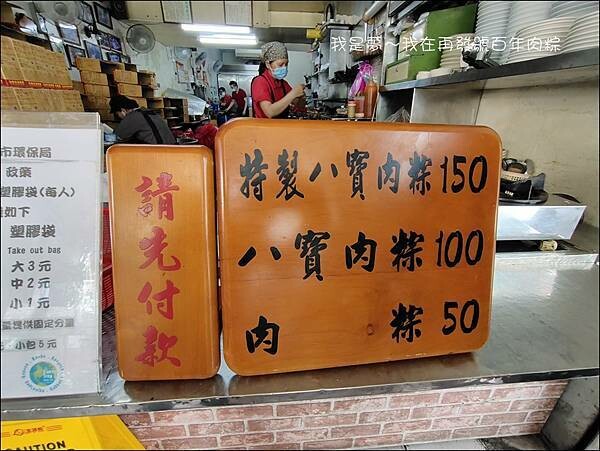 我是蔡~我在再發號百年肉粽
市環保局
政策
塑膠袋(每人)
如下
塑膠袋
Take out bag
大3元
中2元
小1元
量提供固定分量
小包5元
請先付款
特製八寶肉粽150
八寶肉粽100
肉粽50
CAUTION